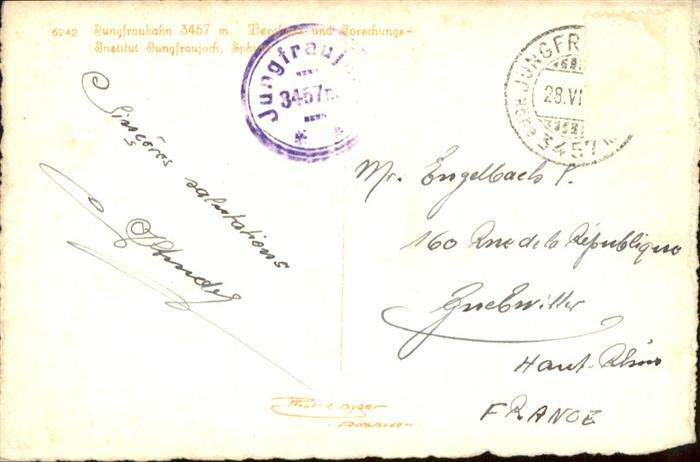 6242 Jungfraubahn 3457 m Berghaus und Forschungs-
Institut Jungfraujoch, Sphinx
Jungfraujoch
3457 m
JUNGFR
28.VI
3457 m
Sincères
salutations
Mr. Engelbach P.
160 Rue de la République
Guebwiller
Haut-Rhin
FRANCE